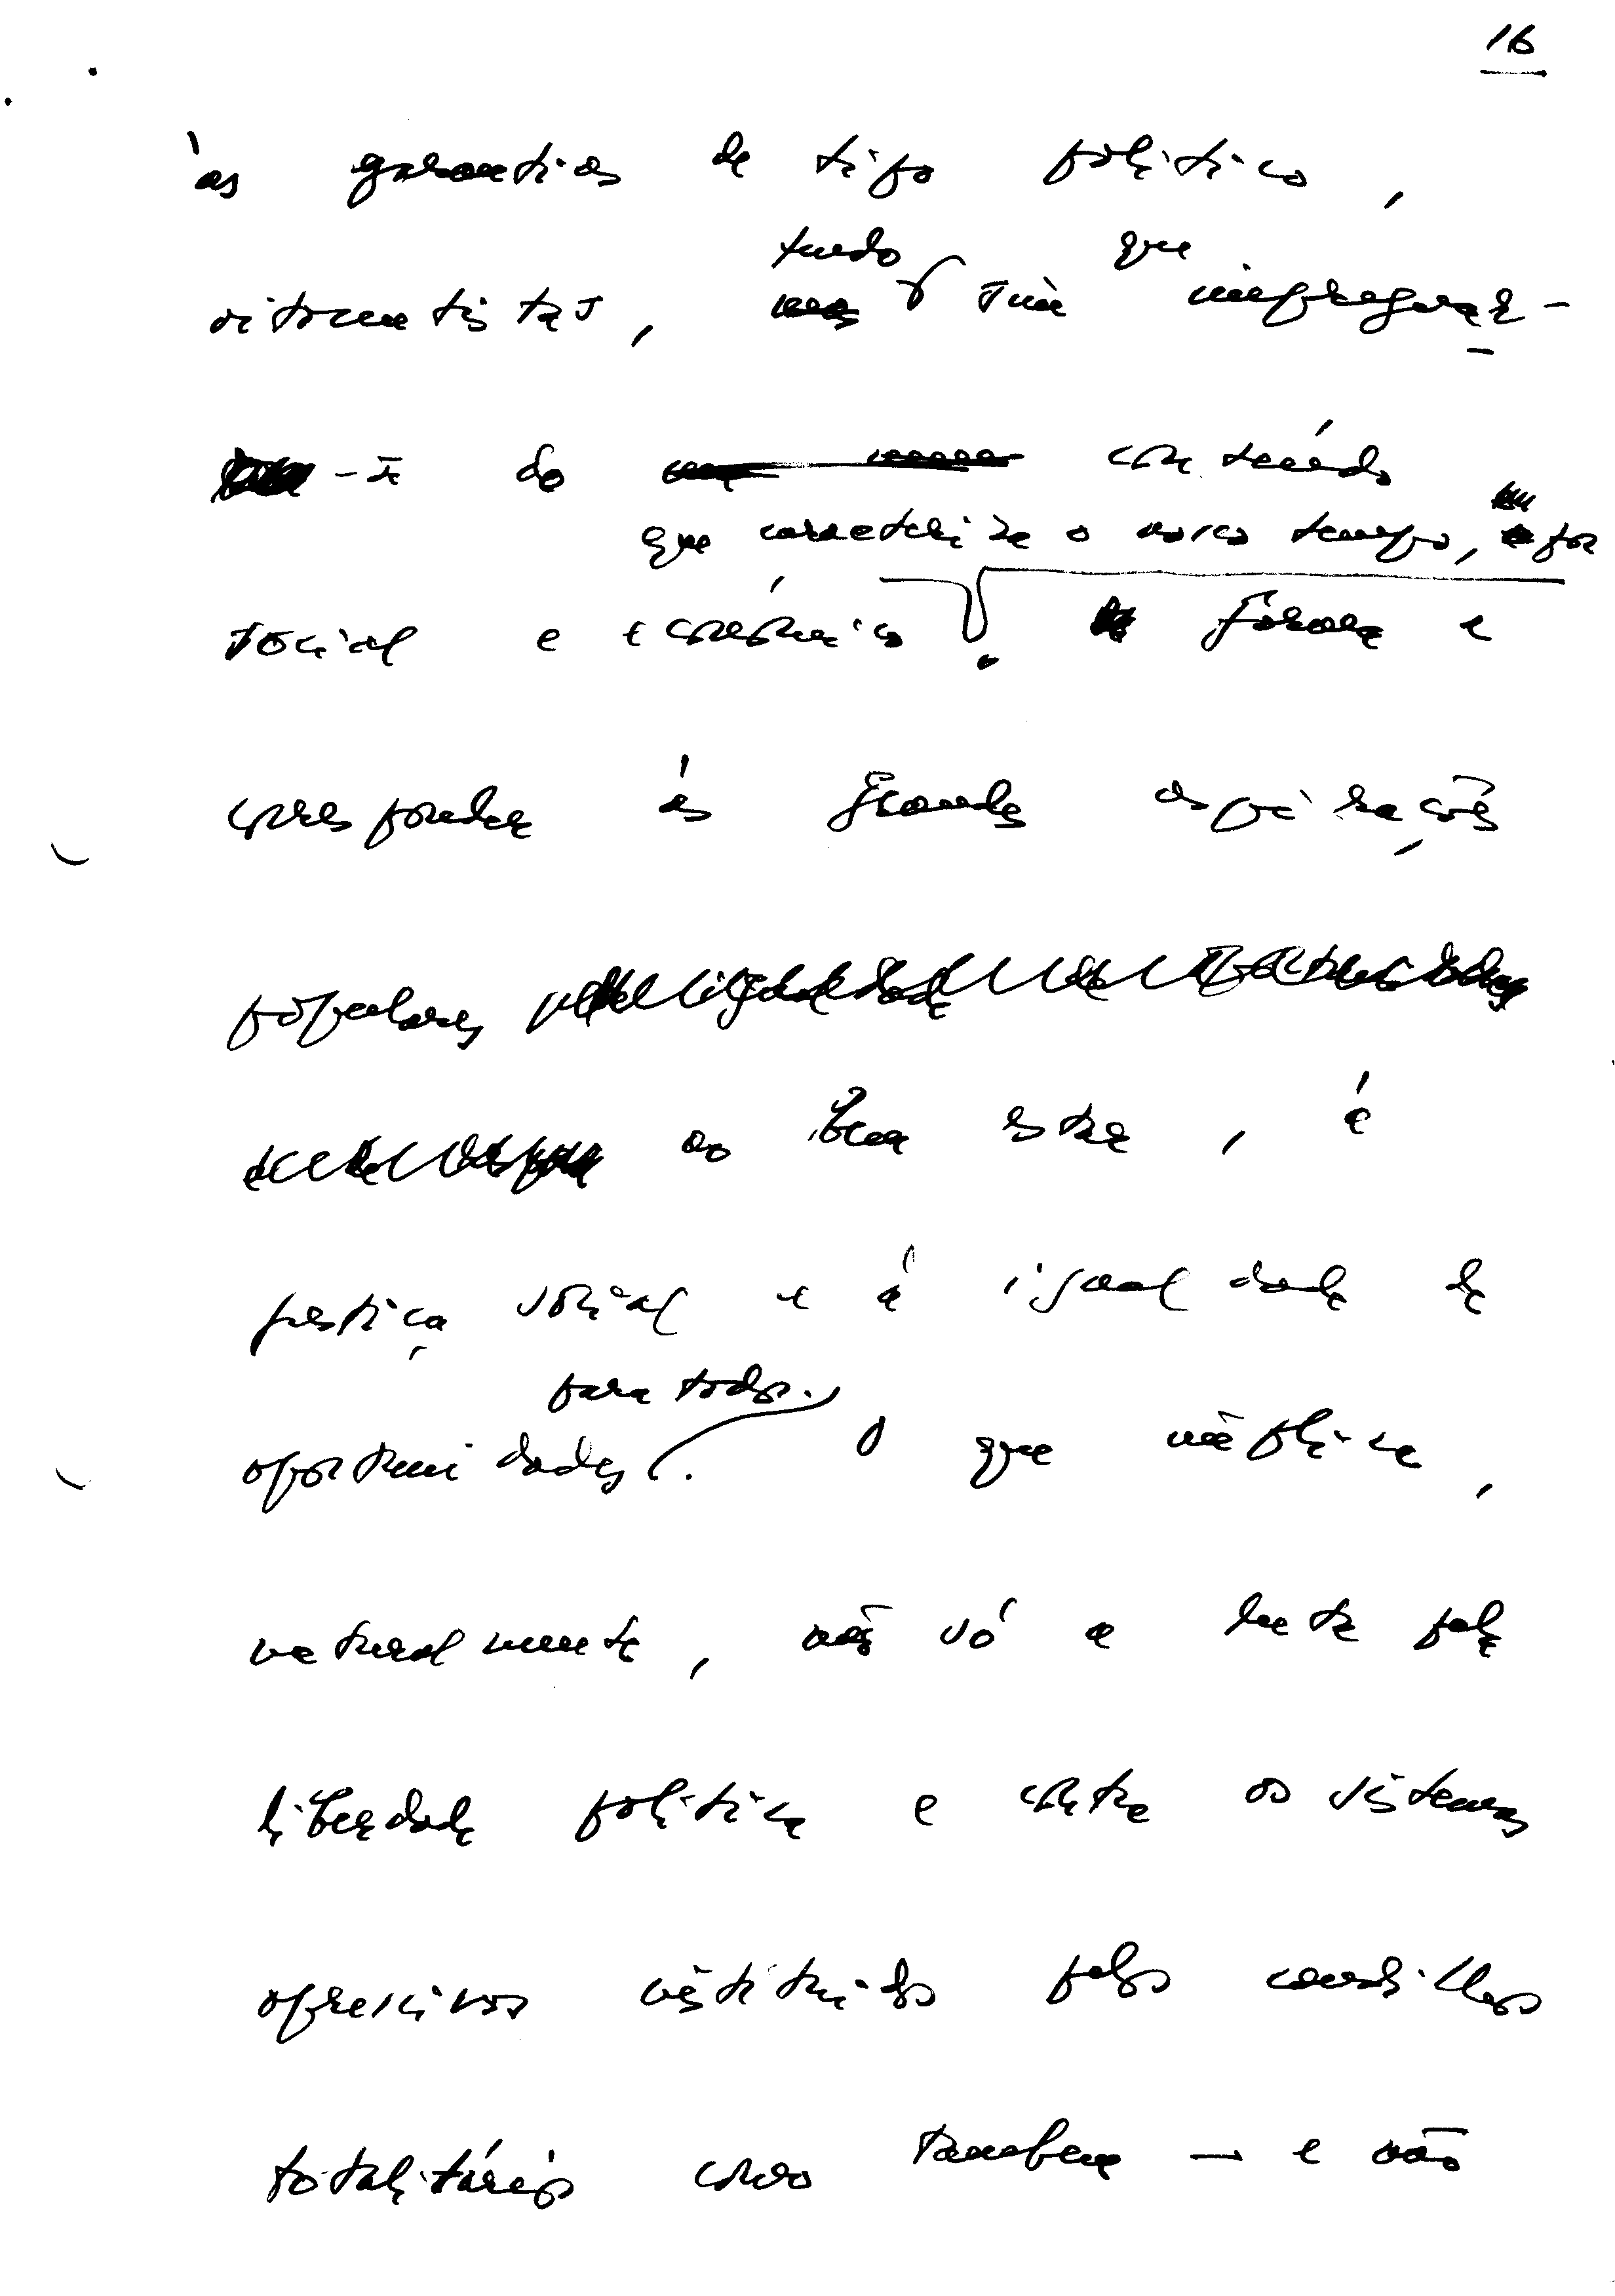 16
às garantias de tipo político,
tudo que
oitocentistas, sim impregná-
-la do conteúdo
que caracteriza o nosso tempo, por
social e económico. forma a
corresponder às grandes aspirações
populares
ao bem estar, à
justiça social e à igualdade de
para todos.
oportunidades. O que implica,
naturalmente, não só a luta pela
liberdade política e contra os sistemas
opressivos instituídos pelos caudilhos
totalitários como também — e não